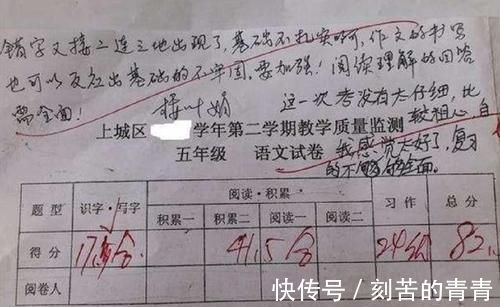 错字又接二连三地出现了,基础不扎实啊,作文的书写
也可以反应出基础的不牢固,要加强!阅读理解的回答
需全面!
这一次考没有太仔细,比
较粗心,自
上城区 学年第二学期教学质量监测
五年级 语文试卷
我感觉太好了,复习
的不够全面。
题型 识字·写字 阅读·积累 习作 总分
积累一 积累二 阅读一 阅读二
得分 41.5分 24分 82
阅卷人
快传号/刻苦的青青